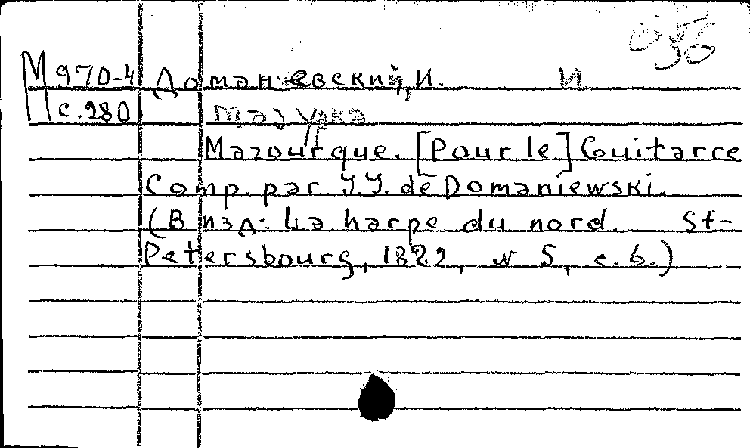 М 970-4 Доманевский, И. И
с. 280 Мазурка
Mazourque. [Pour le] Gouitarre
Comp. par J. J. de Domaniewski.
(В изд: La harpe du nord. St-
Petersbourg, 1822, N 5, с. 6.)